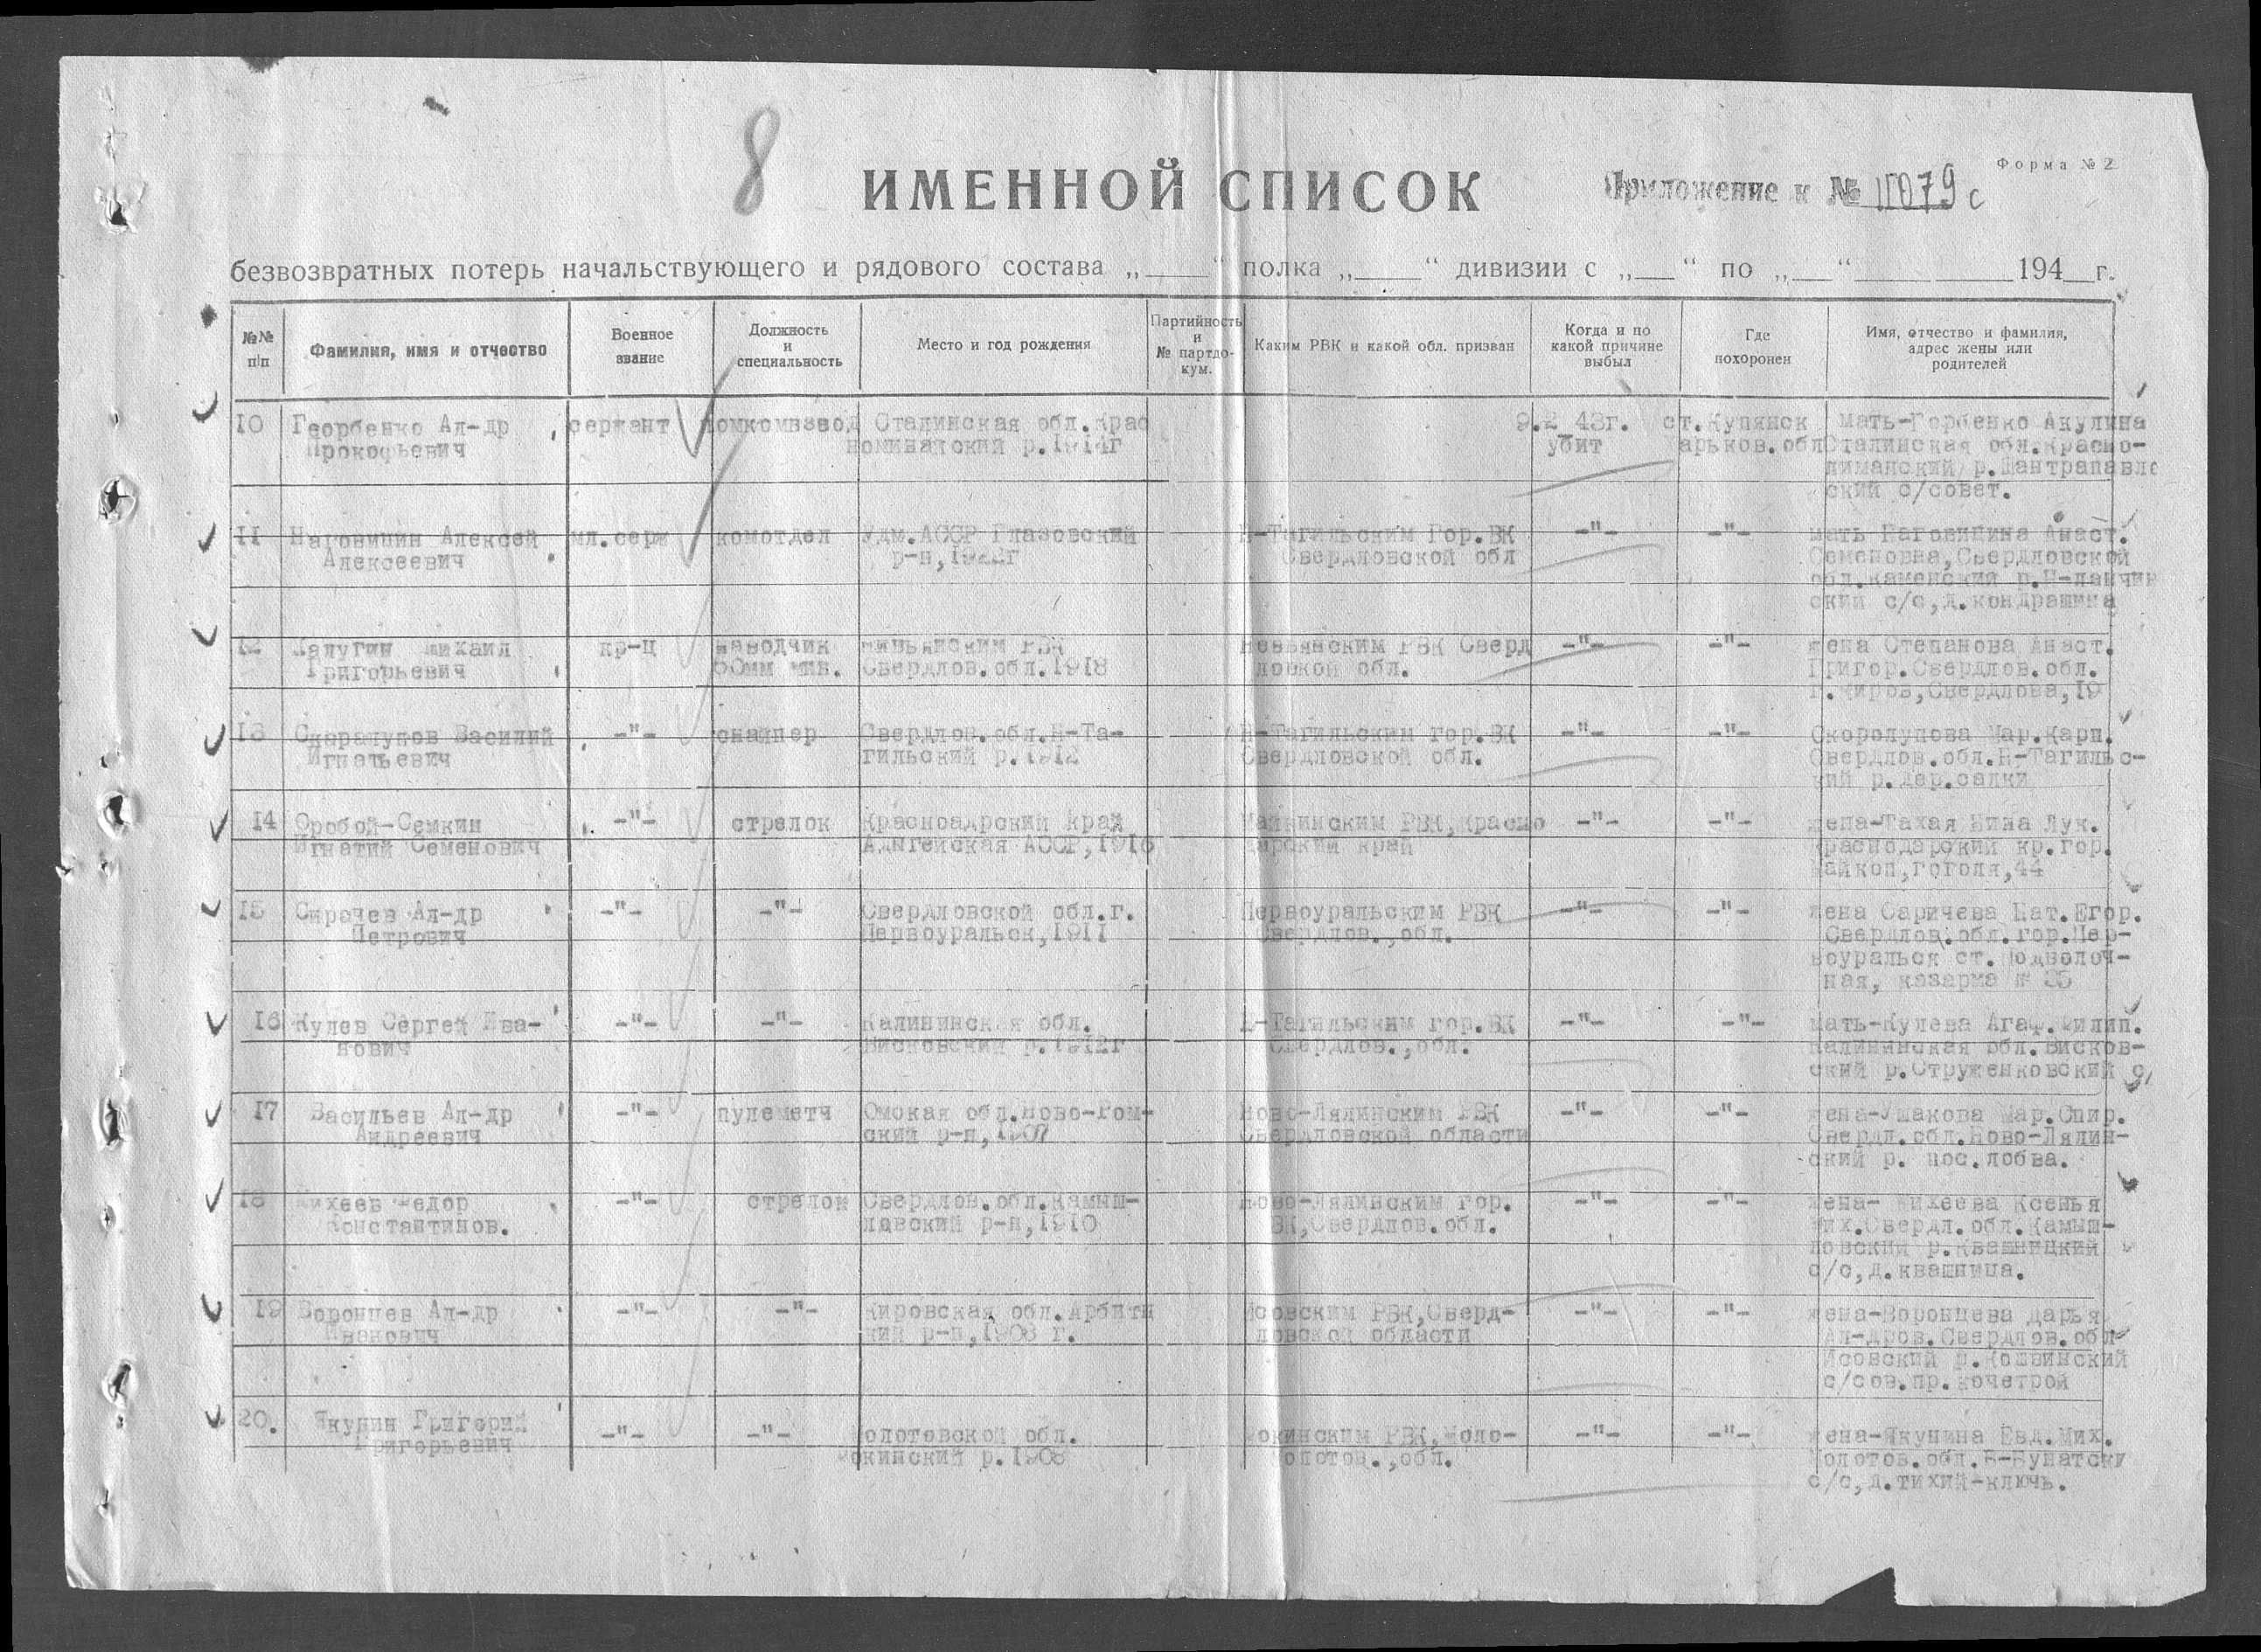 8
Форма № 2
ИМЕННОЙ СПИСОК
Приложение к № 11079 с
безвозвратных потерь начальствующего и рядового состава „____“ полка „____“ дивизии с „__“ по „__“ ________ 194__г.
№№ п/п | Фамилия, имя и отчество | Военное звание | Должность и специальность | Место и год рождения | Партийность и № партдокум. | Каким РВК и какой обл. призван | Когда и по какой причине выбыл | Где похоронен | Имя, отчество и фамилия, адрес жены или родителей
10 Георбенко Ал-др сержант помкомвзвод Сталинская обл.Крас 9.2 43г. ст.Купянск мать-Горбенко Акулина
Прокофьевич номинатский р.1914г убит арьков.обл Сталинская обл.Красно-
лиманский р.Шантрапавло
ский с/совет.
11 Наговицин Алексей мл.серж комотдел Удм.АССР Глазовский Н-Тагильским Гор.ВК -"- -"- мать Наговицина Анаст.
Алексеевич р-н,1922г Свердловской обл Семеновна,Свердловской
обл.каменский р.Н-
ский с/с,д.кондрашина
12 Михаил кр-ц наводчик РВК Невьянским РВК Сверд -"- -"- жена Степанова Анаст.
Григорьевич 50мм мин. Свердлов.обл.1918 ловской обл. Григор.Свердлов.обл.
г.Киров,Свердлова,19
13 Василий -"- снайпер Свердлов.обл.Н-Та- Н-Тагильским гор.ВК -"- -"- Скоролупова Мар.Карп.
Игнатьевич гильский р.1912 Свердловской обл. Свердлов.обл.Н-Тагильс-
кий р.дер.салки
14 Оробой-Семкин -"- стрелок Красноадрский край РВК,Красно -"- -"- жена-Тахая Нина Лук.
Игнатий Семенович Адыгейская АССР,1918 дарский край Краснодарский кр.гор.
Майкоп,гоголя,44
15 Сирачев Ал-др -"- -"- Свердловской обл.г. Первоуральским РВК -"- -"- жена Саричева Кат.Егор.
Петрович Первоуральск,1911 Свердлов.,обл. Свердлов.обл.гор.Пер-
воуральск ст.Подволоч-
ная, казарма № 35
16 Кулев Сергей Ива- -"- -"- Калининская обл. Н-Тагильским гор.ВК -"- -"- мать-Кулева Агаф.Филип.
нович Висковский р.1912г Свердлов.,обл. Калининская обл.Висков-
ский р.Струженковский с/
17 Васильев Ал-др -"- пулеметч Омская обл.Ново-Ром- Ново-Лялинским РВК -"- -"- жена-Ушакова Мар.Спир.
Андреевич ский р-н,1907 Свердловской области Свердл.обл.Ново-Лялин-
ский р. пос.лобва.
18 Михеев Федор -"- стрелок Свердлов.обл.Камыш- Ново-Лялинским гор. -"- -"- жена- Михеева Ксенья
Константинов. ловский р-н,1910 ВК,Свердлов.обл. Мих.Свердл.обл.Камыш-
ловский р.Квашницкий
с/с,д.квашнина.
19 Воронцев Ал-др -"- -"- Кировская обл.Арбитн Исовским РВК,Сверд- -"- -"- жена-Воронцева Дарья
Иванович кий р-н,1908 г. ловской области Ал-дров.Свердлов.обл
Исовский р.Кошвинский
с/сов.пр.кочетрой
20. Якунин Григорий -"- -"- Молотовской обл. РВК,Моло- -"- -"- жена-Якунина Евд.Мих.
Григорьевич р.1908 олотов.,обл. Молотов.обл.
с/с,д.тихий-ключь.